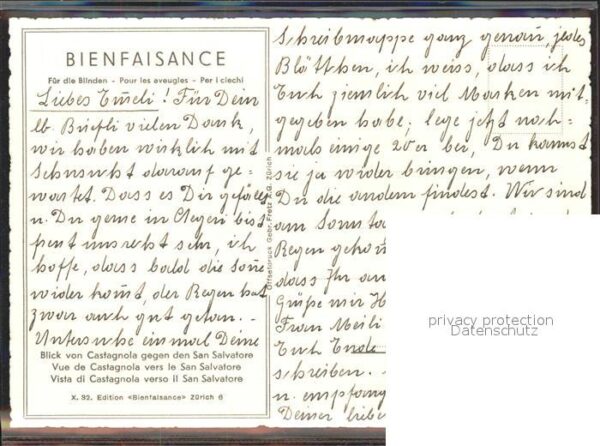 BIENFAISANCE
Für die Blinden - Pour les aveugles - Per i ciechi
Liebes Em̄eli! Für Dein
lb. Briefli vielen Dank,
wir haben wirklich mit
Sehnsucht darauf ge-
wartet. Dass es Dir gefällt
u. Du gerne in Clegen bist
freut uns recht sehr, ich
hoffe, dass bald die Son̄e
wider kom̄t, der Regen hat
zwar auch gut getan. -
Untersuche einmal Deine
Blick von Castagnola gegen den San Salvatore
Vue de Castagnola vers le San Salvatore
Vista di Castagnola verso il San Salvatore
X. 82. Edition «Bienfaisance» Zürich 6
Offsetdruck Gebr. Fretz A.G. Zürich
Schreibmappe ganz genau, jedes
Blättchen, ich weiss, dass ich
Euch ziemlich viel Marken mit-
gegeben habe; lege jetzt noch-
mals einige 20er bei, Du kannst
sie ja wider bringen, wenn
Du die andern findest. Wir sind
am
Regen
dass Ihr
Grüße mir
Frau Meili
Euch Ende
schreiben. -
u.
Deiner
privacy protection
Datenschutz